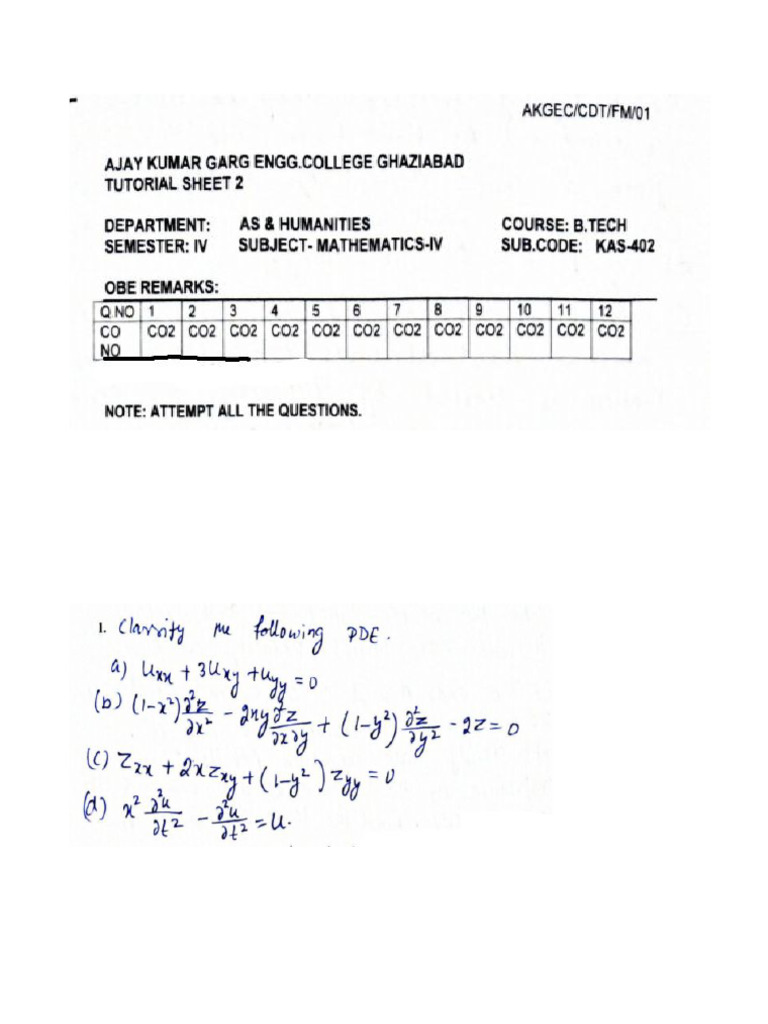 AKGEC/CDT/FM/01
AJAY KUMAR GARG ENGG.COLLEGE GHAZIABAD
TUTORIAL SHEET 2
DEPARTMENT: AS & HUMANITIES COURSE: B.TECH
SEMESTER: IV SUBJECT- MATHEMATICS-IV SUB.CODE: KAS-402
OBE REMARKS:
Q.NO 1 2 3 4 5 6 7 8 9 10 11 12
CO NO CO2 CO2 CO2 CO2 CO2 CO2 CO2 CO2 CO2 CO2 CO2 CO2
NOTE: ATTEMPT ALL THE QUESTIONS.
1. Classify the following PDE.
a) Uxx + 3Uxy + Uyy = 0
(b) (1-x²) ∂²z/∂x² - 2xy ∂²z/∂x∂y + (1-y²) ∂²z/∂y² - 2z = 0
(c) Zxx + 2xZxy + (1-y²) Zyy = 0
(d) x² ∂²u/∂t² - ∂²u/∂t² = u.